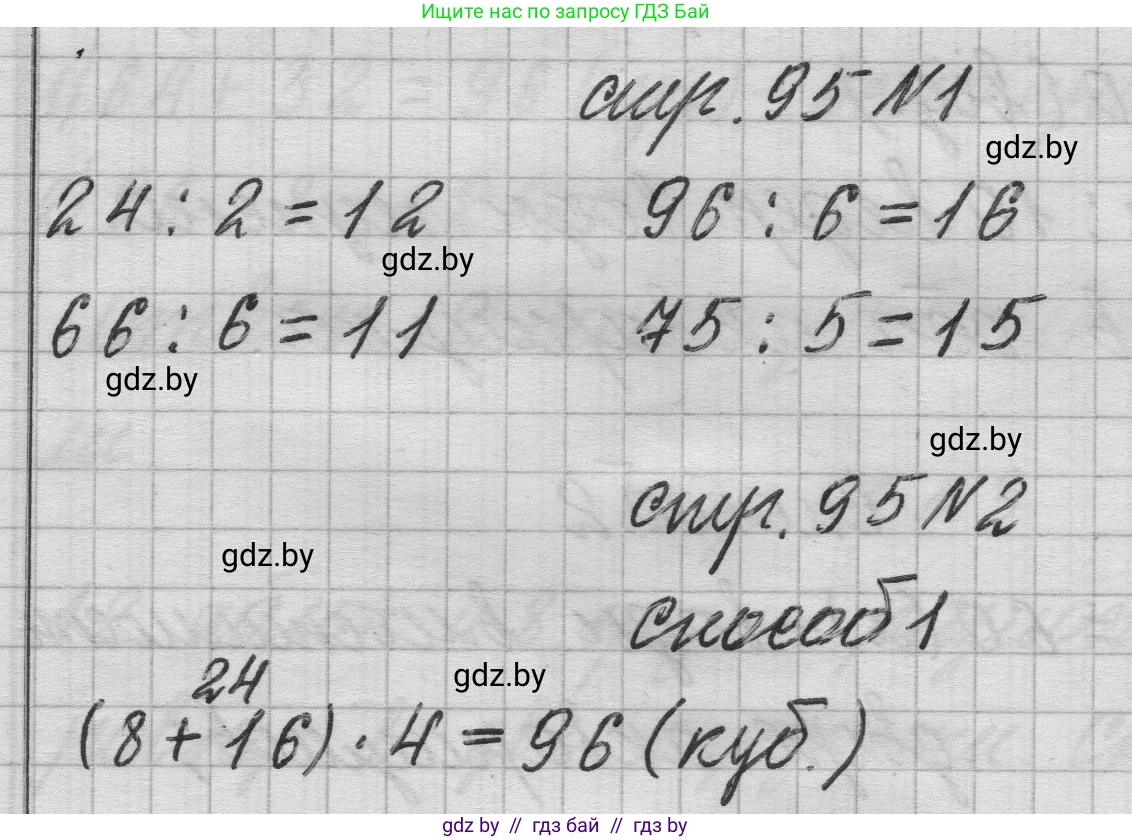 Ищите нас по запросу ГДЗ Бай
стр. 95 N1
gdz.by
24 : 2 = 12 96 : 6 = 16
gdz.by
66 : 6 = 11 75 : 5 = 15
gdz.by
gdz.by
стр. 95 N2
gdz.by
способ 1
24
gdz.by
(8 + 16) · 4 = 96 (куб.)
gdz by // гдз бай // gdz by